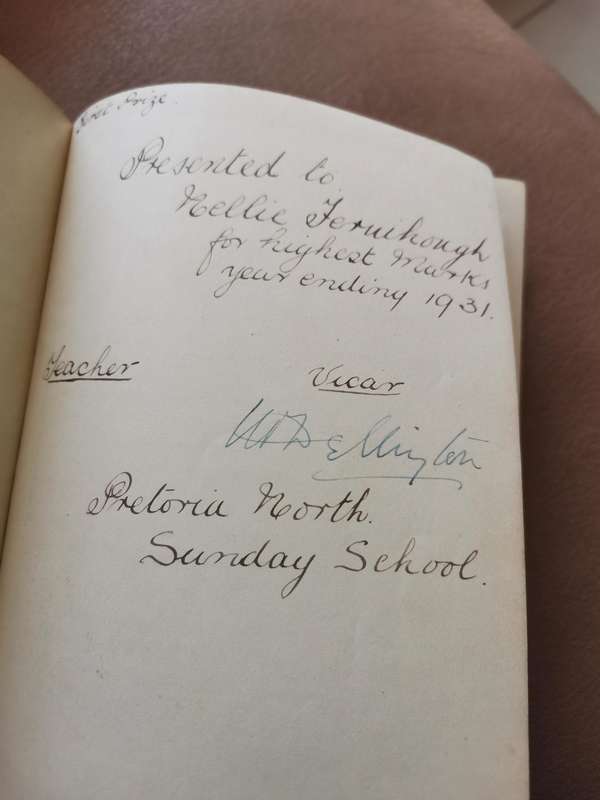 First Prize.
Presented to
Nellie Fernihough
for highest Marks
year ending 1931.
Teacher Vicar
Ellington
Pretoria North.
Sunday School.